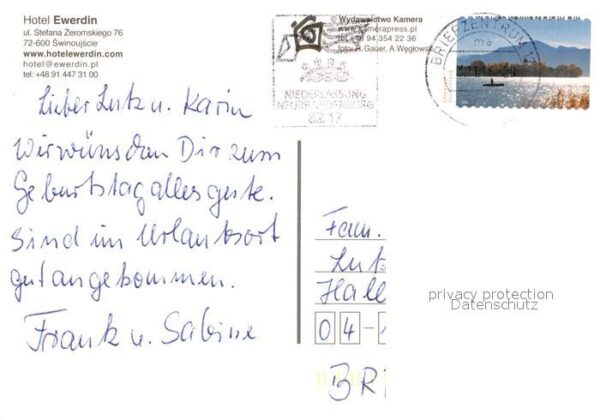 Hotel Ewerdin
ul. Stefana Żeromskiego 76
72-600 Świnoujście
www.hotelewerdin.com
hotel@ewerdin.pl
tel: +48 91 447 31 00
Wydawnictwo Kamera
www.kamerapress.pl
94 354 22 36
foto: R. Gauer, A. Węgłowski
BRIEFZENTRUM
NIEDERLASSUNG
NEUBRANDENBURG
BZ 17
Lieber Lutz u. Karin
Wir wünschen Dir zum
Geburtstag alles gute.
Sind im Urlaubsort
gut angekommen.
Frank u. Sabine
Fam.
Hall
04-
BR
privacy protection
Datenschutz